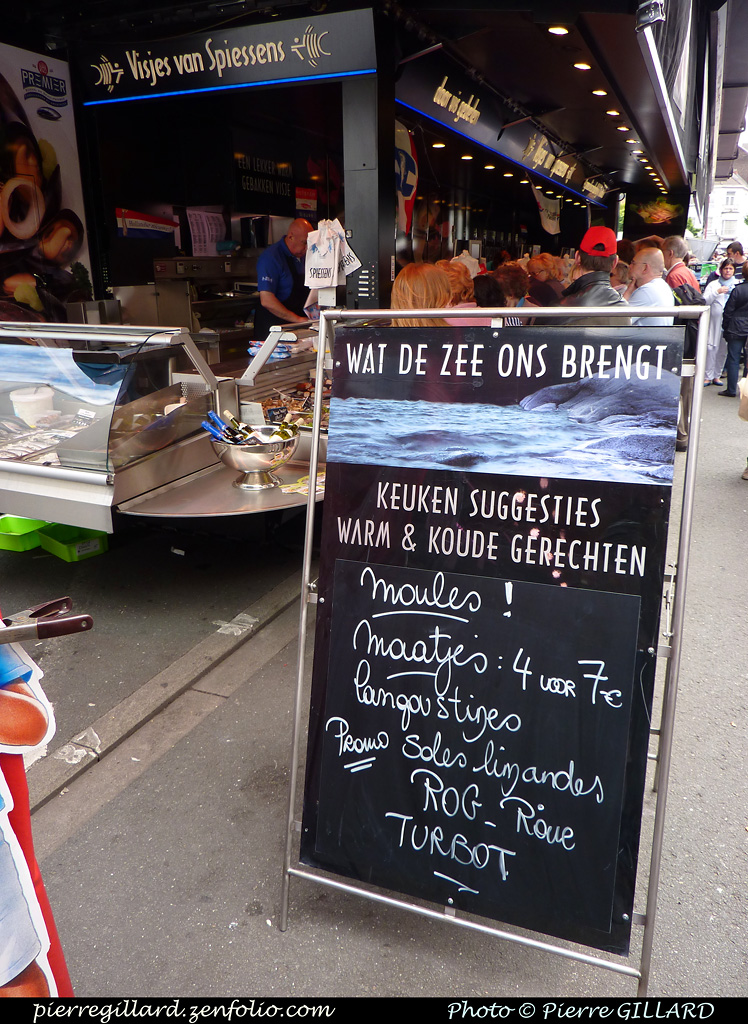 Visjes van Spiessens
PREMIER
door ons gebakken
EEN LEKKER WARM
GEBAKKEN VISJE
SPIESSENS
WAT DE ZEE ONS BRENGT
KEUKEN SUGGESTIES
WARM & KOUDE GERECHTEN
Moules !
Maatjes : 4 voor 7€
Langoustines
Promo Soles limandes
ROG - Raie
TURBOT
pierregillard.zenfolio.com
Photo © Pierre GILLARD